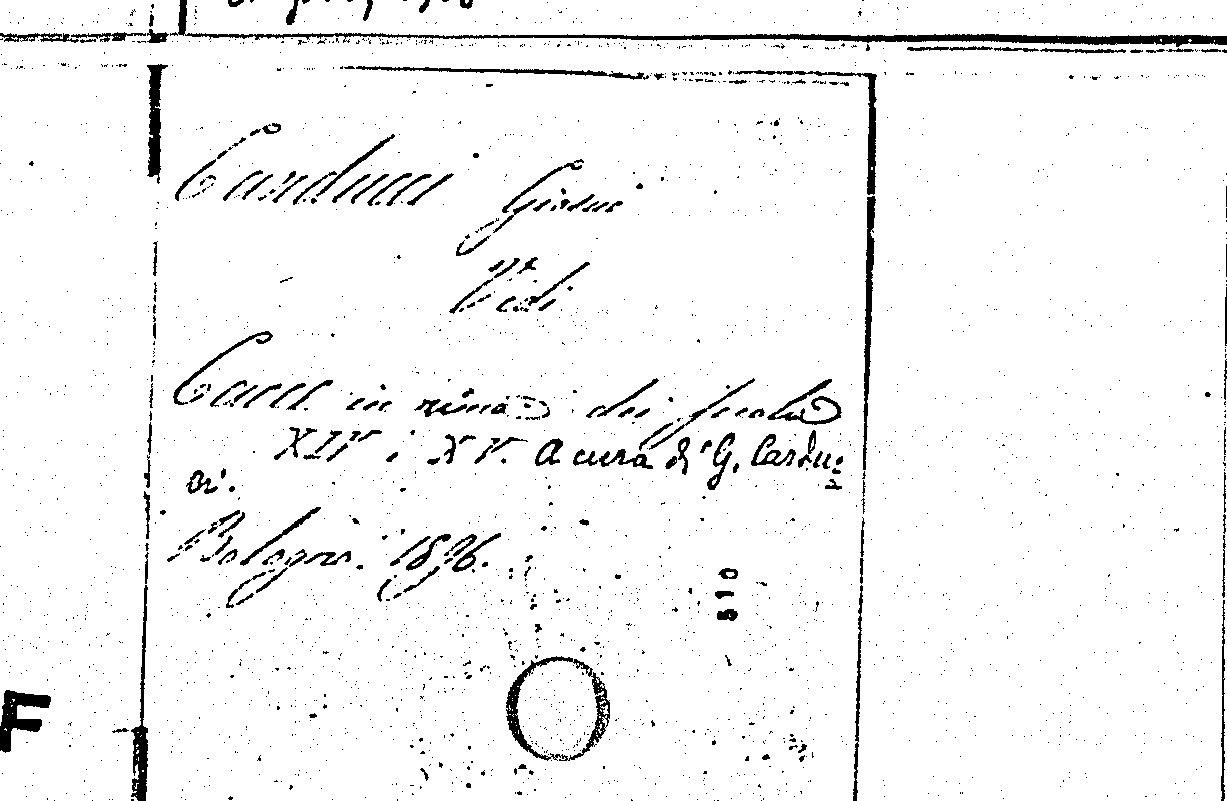 1908
Carducci Giosuè
Vedi
Cacce in rima dei secoli
XIV i XV. A cura di G. Cardu=
cci.
Bologna. 1896.
510
F